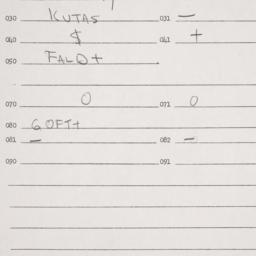 030 KUTAS 031 —
040 $ 041 +
050 FALO+
070 0 071 0
080 6 OFT+
081 — 082 —
090 091